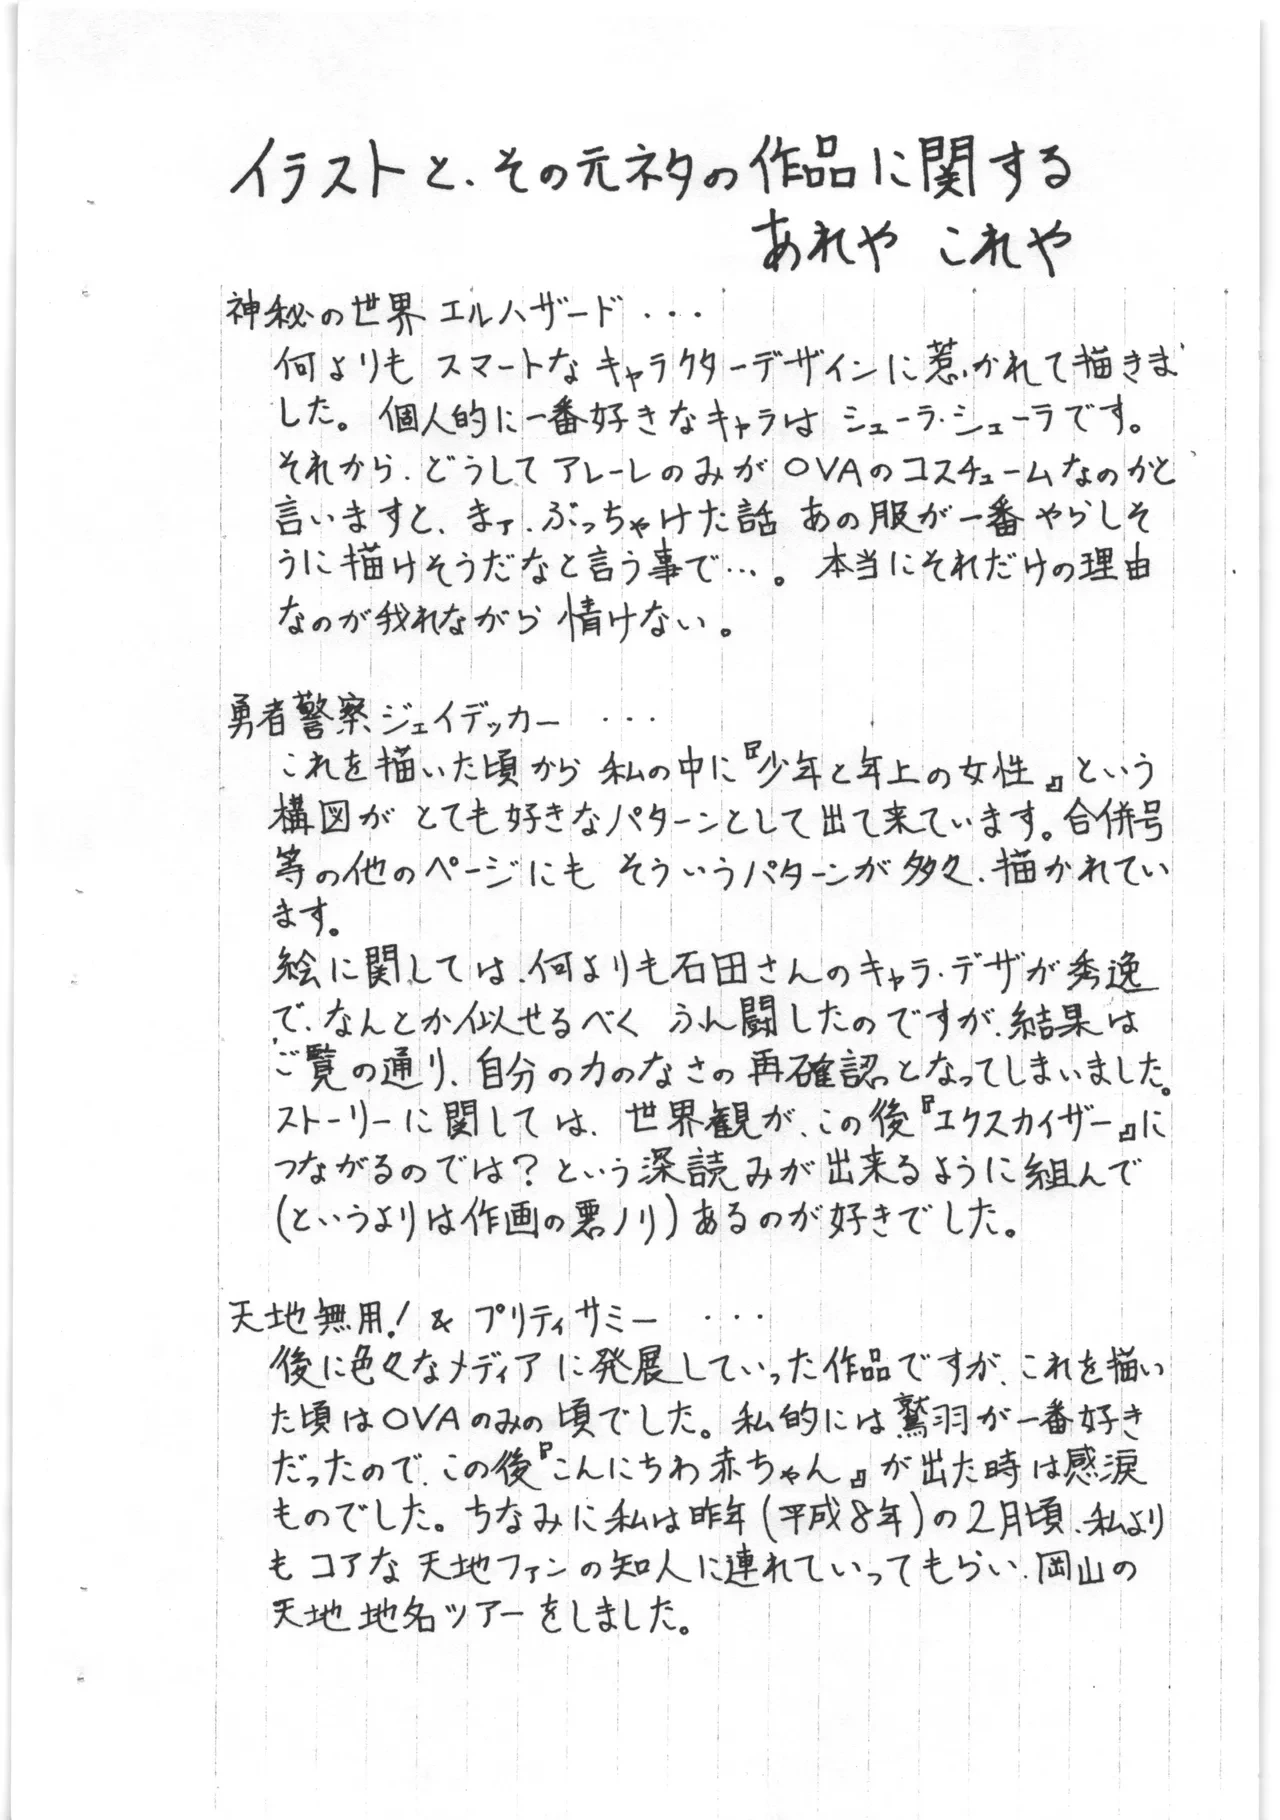 イラストと、その元ネタの作品に関する
あれや これや
神秘の世界 エルハザード ・・・
何よりも スマートな キャラクターデザインに惹かれて描きま
した。個人的に一番好きなキャラは シェーラ・シェーラです。
それから、どうしてアレーレのみが OVAのコスチュームなのかと
言いますと、まァ、ぶっちゃけた話 あの服が一番やらしそ
うに描けそうだなと言う事で…。本当にそれだけの理由
なのが我れながら 情けない。
勇者警察ジェイデッカー ・・・
これを描いた頃から 私の中に『少年と年上の女性』という
構図が とても好きなパターンとして出て来ています。合併号
等の他のページにも そういうパターンが多々、描かれてい
ます。
絵に関しては、何よりも石田さんのキャラ・デザが秀逸
で、なんとか似せるべく ふん闘したのですが、結果は
ご覧の通り、自分の力のなさの再確認となってしまいました。
ストーリーに関しては、世界観が、この後『エクスカイザー』に
つながるのでは?という深読みが出来るように組んで
(というよりは作画の悪ノリ)あるのが好きでした。
天地無用! & プリティサミー ・・・
後に色々なメディアに発展していった作品ですが、これを描い
た頃はOVAのみの頃でした。私的には鷲羽が一番好き
だったので、この後『こんにちわ赤ちゃん』が出た時は感涙
ものでした。ちなみに私は昨年(平成8年)の2月頃、私より
もコアな天地ファンの知人に連れていってもらい、岡山の
天地 地名ツアーをしました。